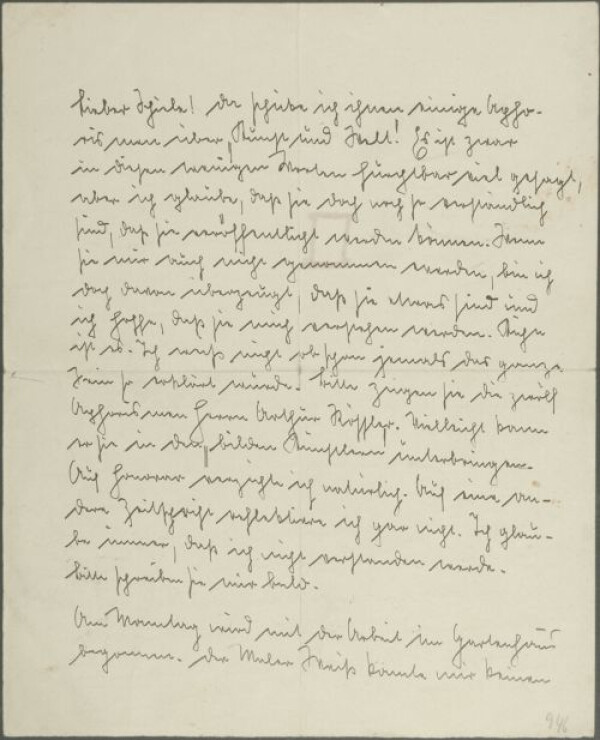 Lieber Schiele! Da schicke ich ihnen einige Apho-
rismen über „Kunst und Welt! Es ist zwar
in diesen wenigen Worten furchtbar viel gesagt,
aber ich glaube, daß sie doch noch so verständlich
sind, daß sie veröffentlicht werden können. Wenn
sie mir auch nicht genommen werden, bin ich
doch davon überzeugt, daß sie etwas sind und
ich hoffe, daß sie mich verstehen werden. Kühn
ist es. Ich weiß nicht ob schon jemals das ganze
Sein so erklärt wurde. Bitte zeigen sie die zwölf
Aphorismen Herrn Arthur Rössler. Vielleicht kann
er sie in den „bilden Künstlern unterbringen.
Auf Honorar verzichte ich natürlich. Auf eine an-
dere Zeitschrift reflektiere ich gar nicht. Ich glau-
be immer, daß ich nicht verstanden werde.
Bitte schreiben sie mir bald.
Am Montag wird mit der Arbeit im Gartenhaus
begonnen. Der Maler Weiß konnte mir keinen
946